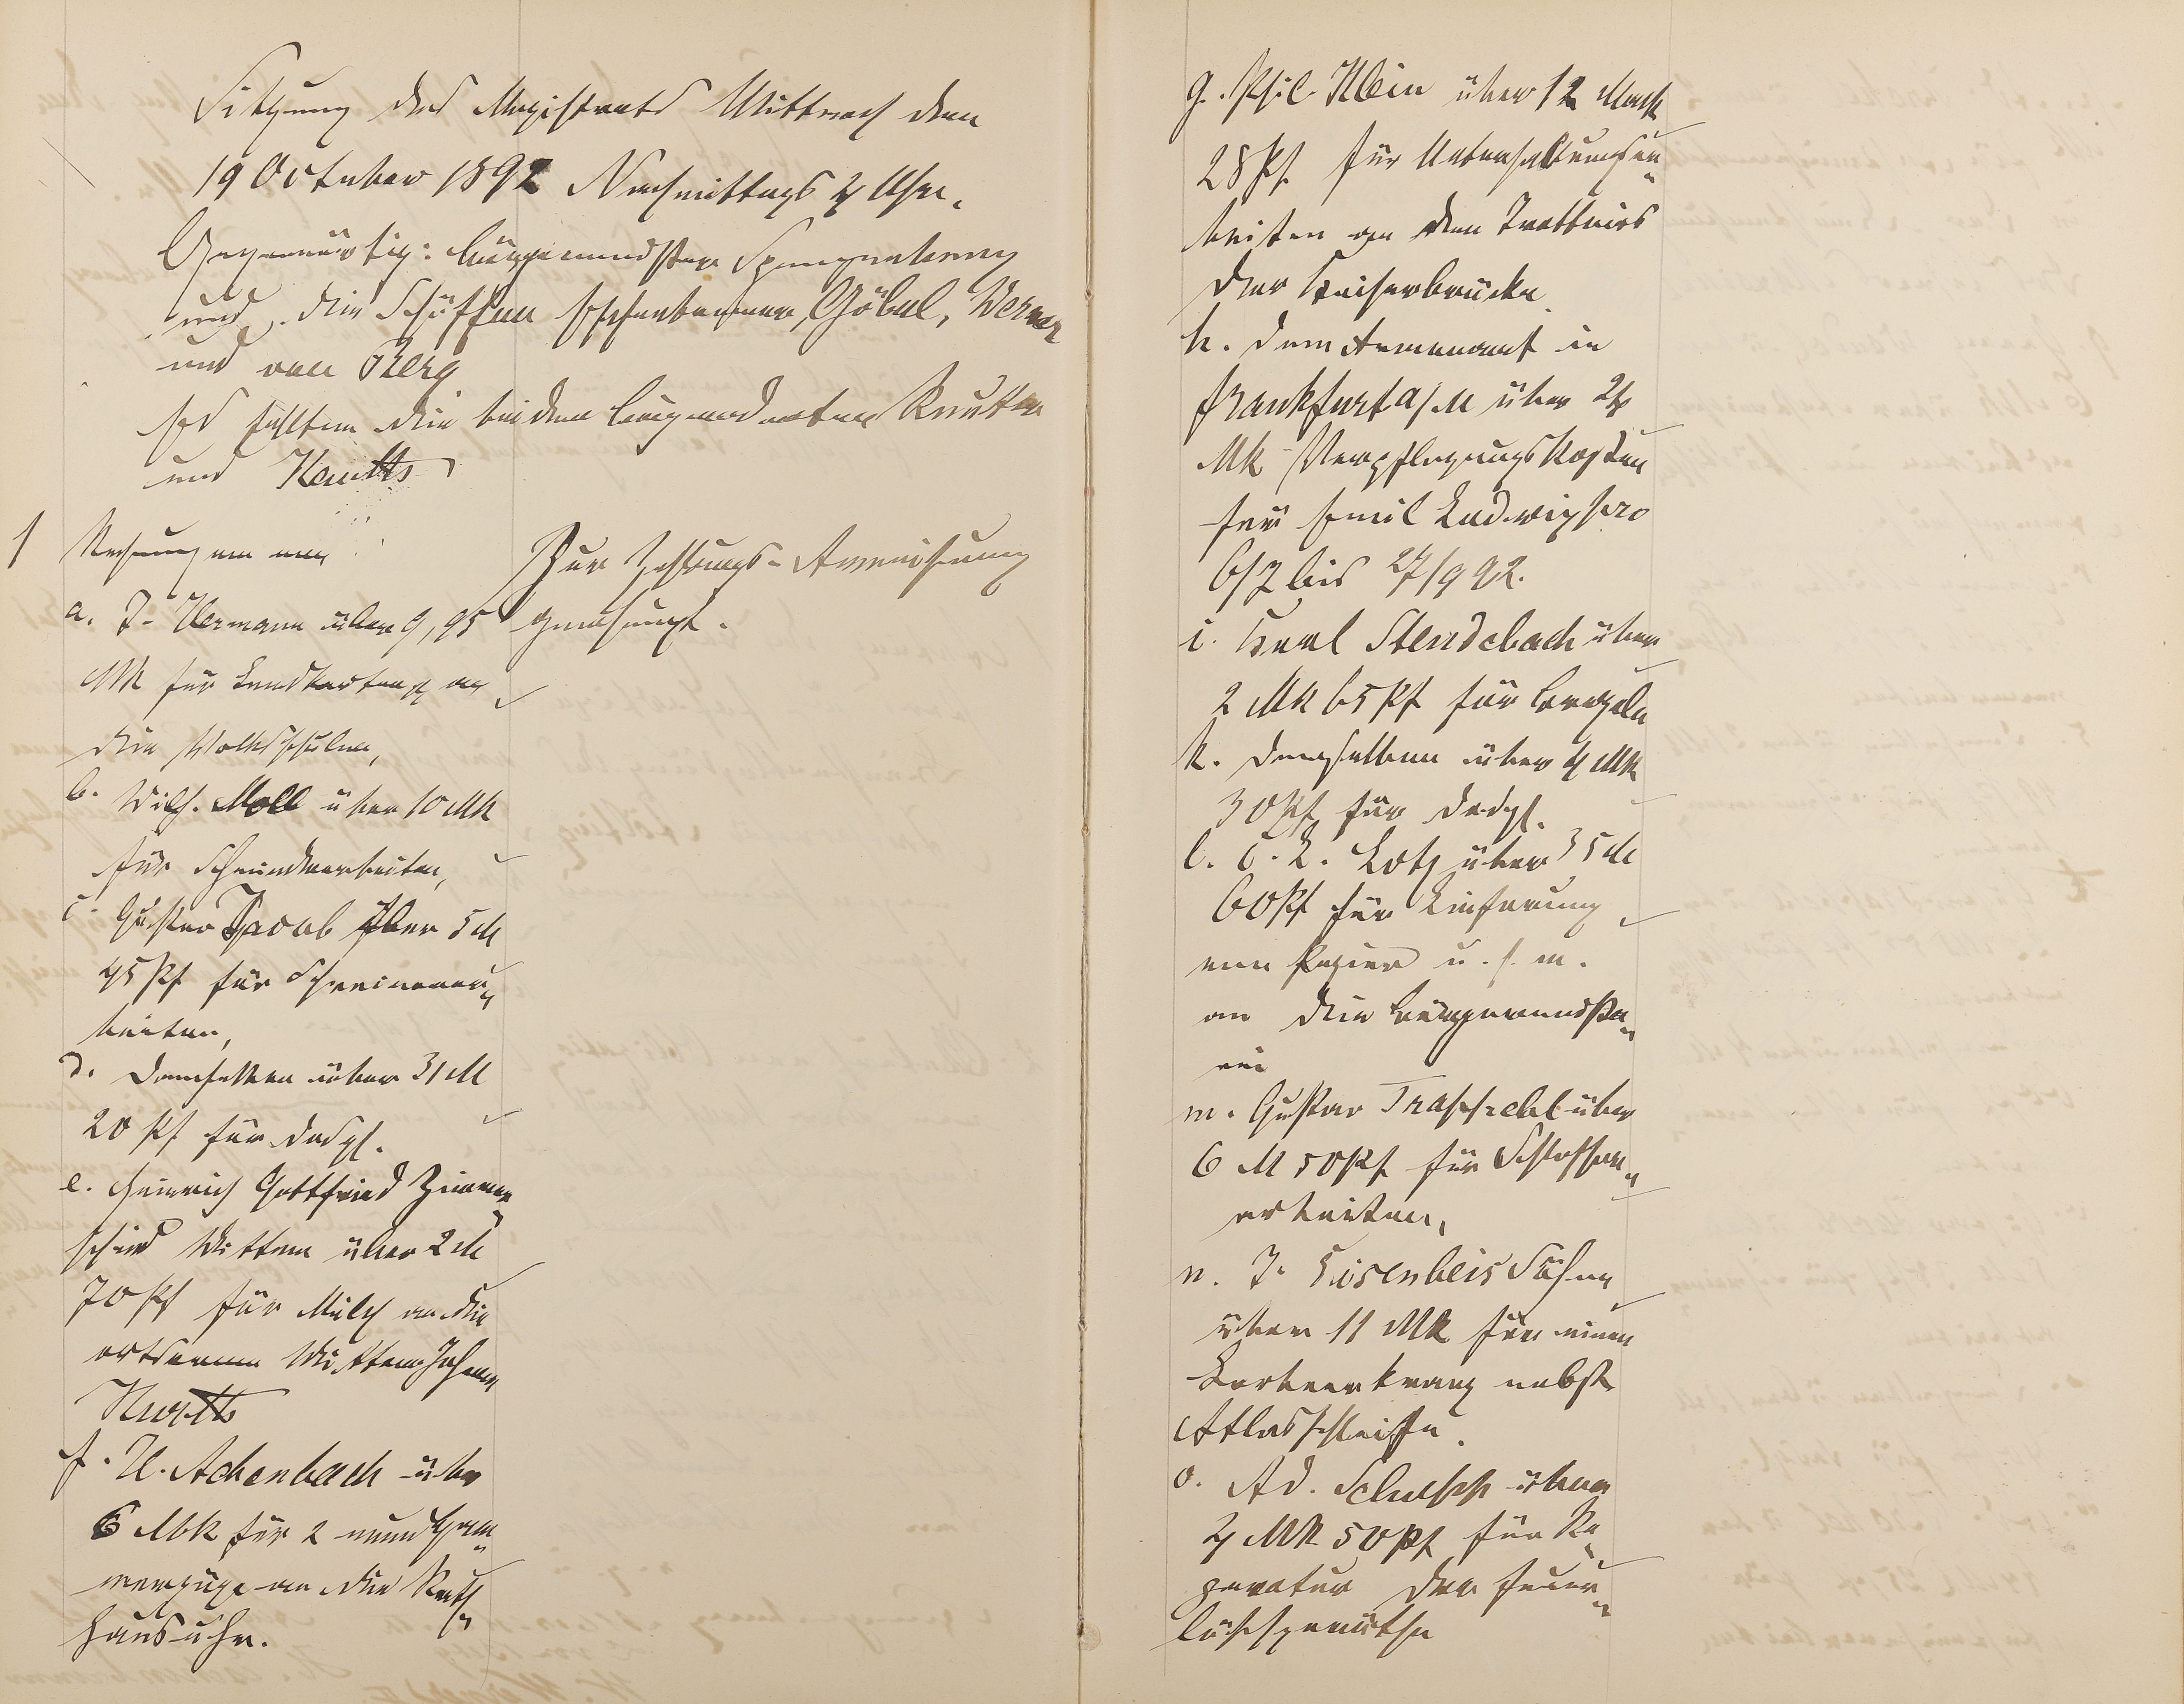 Sitzung des Magistrats Mittwoch den
19 October 1892 Nachmittags 4 Uhr.
Gegenwärtig: Bürgermeister Spangenberg
und die Schöffen Eschenbrenner, Göbel, Werner
und von Berg
Es fehlten die beiden Beigeordneten
und
1
Rechnungen von
a. J. Ulrmann über 9,95
Mk für Landkarten an
die Volksschulen,
b. Wilh. Moll über 10 Mk
für Schmiedearbeiten,
c. Gustav Jacob über 5 M
45 Pf für Schreinerar-
beiten,
d. Demselben über 31 M
20 Pf für desgl.
e. Heinrich Gottfried Zimmer-
schied Wittwe über 2 M
70 Pf für Milch an die
ortsarme Wittwe Johann
f. H. Achenbach über
6 Mk für 2 neue Ham-
merzüge an die Rath-
hausuhr.
Zur Zahlungs-Anweisung
genehmigt.
g. Phil. Klein über 12 Mark
28 Pf. für Unterhaltungsar-
beiten an den Trottoirs
der Kaiserbrücke
h. dem Armenamt in
Frankfurt a/M über 24
Mk Verpflegungskosten
für Emil Ludwig pro
6/7 bis 27/9 92.
i. Karl Stendebach über
2 Mk 65 Pf für Bretzeln
k. Demselben über 4 Mk
30 Pf für desgl.
l. C. L. Lotz über 35 M
60 Pf für Lieferung
von Papier u. s. w.
an die Bürgermeiste-
rei
m. Gustav Trapprebl über
6 M 50 Pf für Schlosser-
arbeiten,
n. J. Eisenbeis Söhne
über 11 Mk für einen
Lorbeerkranz nebst
Atlasschleife.
o. Ad. Schupp über
4 Mk 50 Pf für Re-
paratur der Feuer-
löschgeräthe